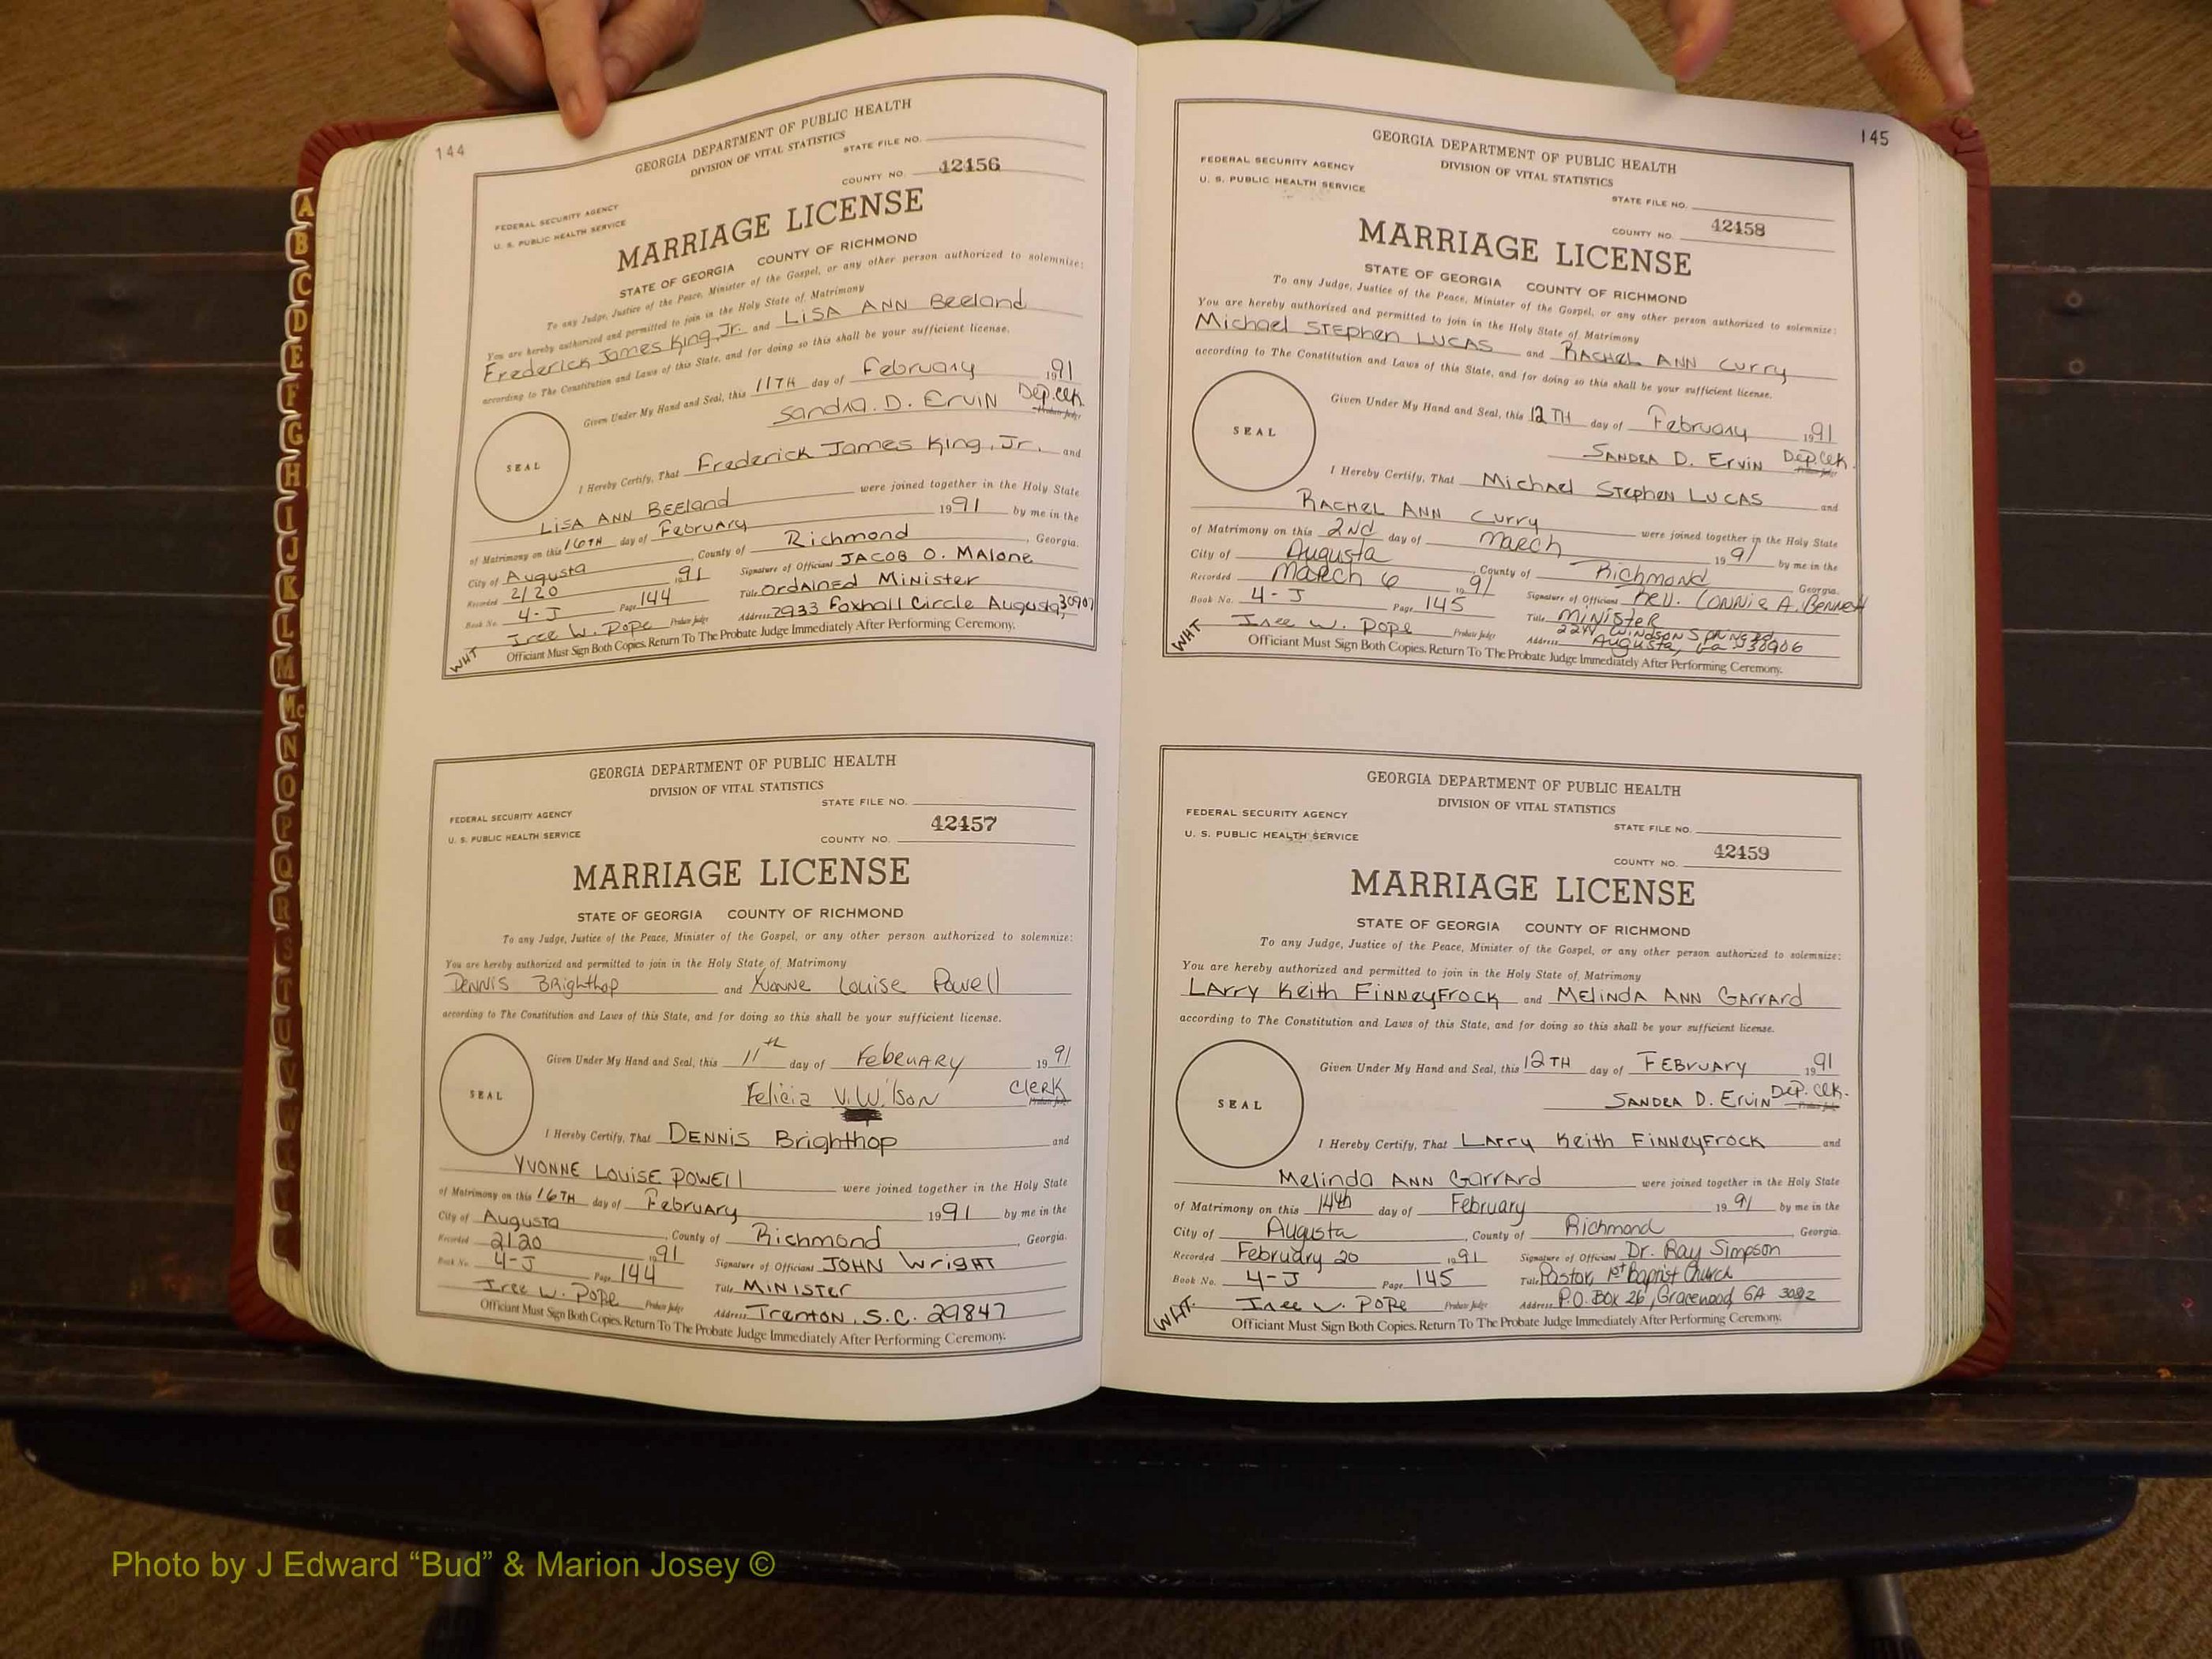 144
GEORGIA DEPARTMENT OF PUBLIC HEALTH
DIVISION OF VITAL STATISTICS
STATE FILE NO.
COUNTY NO. 42456
FEDERAL SECURITY AGENCY
U. S. PUBLIC HEALTH SERVICE
MARRIAGE LICENSE
STATE OF GEORGIA COUNTY OF RICHMOND
To any Judge, Justice of the Peace, Minister of the Gospel, or any other person authorized to solemnize:
You are hereby authorized and permitted to join in the Holy State of Matrimony
Frederick James King, Jr. and LiSA ANN Beeland
according to The Constitution and Laws of this State, and for doing so this shall be your sufficient license.
Given Under My Hand and Seal, this 11TH day of February 1991
Sandra. D. Ervin Dep. Clk. Probate Judge
SEAL
I Hereby Certify, That Frederick James King, Jr. and
LiSA ANN BEEland were joined together in the Holy State
of Matrimony on this 16TH day of February 1991 by me in the
City of Augusta, County of Richmond, Georgia.
Recorded 2/20 1991 Signature of Officiant JACOB O. MAlone
Book No. 4-J Page 144 Title OrdAinED Minister
Iree W. Pope Probate Judge Address 2933 Foxhall Circle Augusta, 30907
WHT
Officiant Must Sign Both Copies. Return To The Probate Judge Immediately After Performing Ceremony.
GEORGIA DEPARTMENT OF PUBLIC HEALTH
DIVISION OF VITAL STATISTICS
STATE FILE NO.
FEDERAL SECURITY AGENCY
U. S. PUBLIC HEALTH SERVICE
COUNTY NO. 42457
MARRIAGE LICENSE
STATE OF GEORGIA COUNTY OF RICHMOND
To any Judge, Justice of the Peace, Minister of the Gospel, or any other person authorized to solemnize:
You are hereby authorized and permitted to join in the Holy State of Matrimony
DENNIS BRighthop and Yvonne Louise Powell
according to The Constitution and Laws of this State, and for doing so this shall be your sufficient license.
Given Under My Hand and Seal, this 11th day of FebruARY 1991
Felicia V. Wilson Clerk Probate Judge
SEAL
I Hereby Certify, That DENNiS Brighthop and
YVONNE LouiSE POWEll were joined together in the Holy State
of Matrimony on this 16TH day of February 1991 by me in the
City of Augusta, County of Richmond, Georgia.
Recorded 2/20 1991 Signature of Officiant JOHN WrigHT
Book No. 4-J Page 144 Title MINISTer
Iree W. Pope Probate Judge Address Trenton, S.C. 29847
Officiant Must Sign Both Copies. Return To The Probate Judge Immediately After Performing Ceremony.
145
GEORGIA DEPARTMENT OF PUBLIC HEALTH
DIVISION OF VITAL STATISTICS
FEDERAL SECURITY AGENCY
U. S. PUBLIC HEALTH SERVICE
STATE FILE NO.
COUNTY NO. 42458
MARRIAGE LICENSE
STATE OF GEORGIA COUNTY OF RICHMOND
To any Judge, Justice of the Peace, Minister of the Gospel, or any other person authorized to solemnize:
You are hereby authorized and permitted to join in the Holy State of Matrimony
Michael STEphen LUCAS and RACHEL ANN Curry
according to The Constitution and Laws of this State, and for doing so this shall be your sufficient license.
Given Under My Hand and Seal, this 12TH day of February 1991
SANDRA D. Ervin Dep. Clk. Probate Judge
SEAL
I Hereby Certify, That Michael Stephen LUCAS and
RACHEL ANN Curry were joined together in the Holy State
of Matrimony on this 2nd day of March 1991 by me in the
City of Augusta, County of Richmond, Georgia.
Recorded March 6 1991 Signature of Officiant Rev. Connie A. Bennett
Book No. 4-J Page 145 Title MiNiSteR
Iree W. Pope Probate Judge Address Augusta, Ga 30906
WHT
Officiant Must Sign Both Copies. Return To The Probate Judge Immediately After Performing Ceremony.
GEORGIA DEPARTMENT OF PUBLIC HEALTH
DIVISION OF VITAL STATISTICS
FEDERAL SECURITY AGENCY
U. S. PUBLIC HEALTH SERVICE
STATE FILE NO.
COUNTY NO. 42459
MARRIAGE LICENSE
STATE OF GEORGIA COUNTY OF RICHMOND
To any Judge, Justice of the Peace, Minister of the Gospel, or any other person authorized to solemnize:
You are hereby authorized and permitted to join in the Holy State of Matrimony
LArry Keith FiNNeyFrock and MELiNdA ANN GArrArd
according to The Constitution and Laws of this State, and for doing so this shall be your sufficient license.
Given Under My Hand and Seal, this 12TH day of FEBruAry 1991
SANDRA D. Ervin Dep. Clk. Probate Judge
SEAL
I Hereby Certify, That LArry Keith FiNNeyFrock and
Melinda ANN GarrArd were joined together in the Holy State
of Matrimony on this 14th day of February 1991 by me in the
City of Augusta, County of Richmond, Georgia.
Recorded February 20 1991 Signature of Officiant Dr. Ray Simpson
Book No. 4-J Page 145 Title Pastor, 1st Baptist Church
Iree W. Pope Probate Judge Address P.O. Box 26, Gracewood, GA
WHT.
Officiant Must Sign Both Copies. Return To The Probate Judge Immediately After Performing Ceremony.
A
B
C
D
E
F
G
H
I
J
K
L
M
Mc
N
O
P
Q
R
S
T
U
V
Photo by J Edward “Bud” & Marion Josey ©